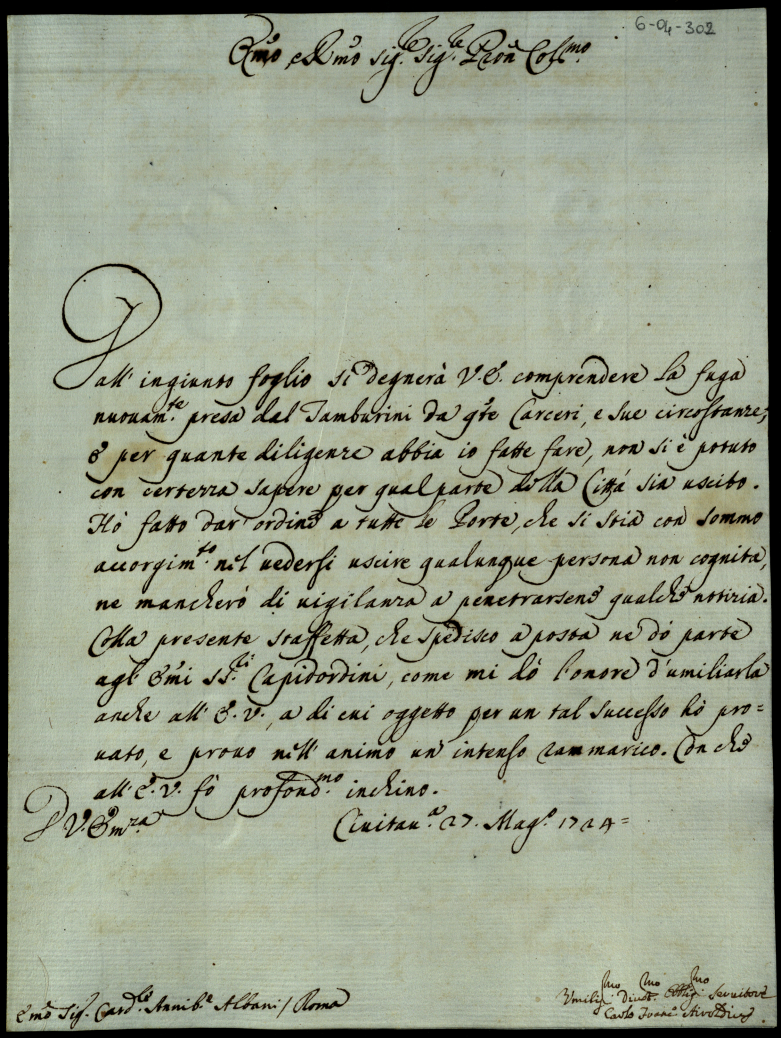 6-04-302
Emo e Rmo Sig.re Sig.re Pron Col.mo
Dall' ingiunto foglio si degnerà V.E. comprendere la fuga
nuouam.te presa dal Tamburini da q.te Carceri, e sue circostanze;
e per quante diligenze abbia io fatte fare, non si è potuto
con certezza sapere per qual parte della Città sia uscito.
Hò fatto dar' ordine a tutte le Porte, che si stia con sommo
accorgim.to nel uedersi uscire qualunque persona non cognita,
ne mancherò di uigilanza a penetrarsene qualche notizia.
Colla presente staffetta, che spedisco a posta ne dò parte
agl' Emi SS.ri Capidordini, come mi dò l'onore d'umiliarla
anche all' E.V., a di cui oggetto per un tal successo hò pro=
uato, e prouo nell' animo un' intenso rammarico. Con che
all' E.V. fò profond.mo inchino.
D V. Em.za
Ciuitau.a 27. Mag.o 1724=
Emo Sig. Card.le Annib.e Albani / Roma
Umilis.mo Diuot.mo Obblig.mo Seruitore
Carlo Franc.o